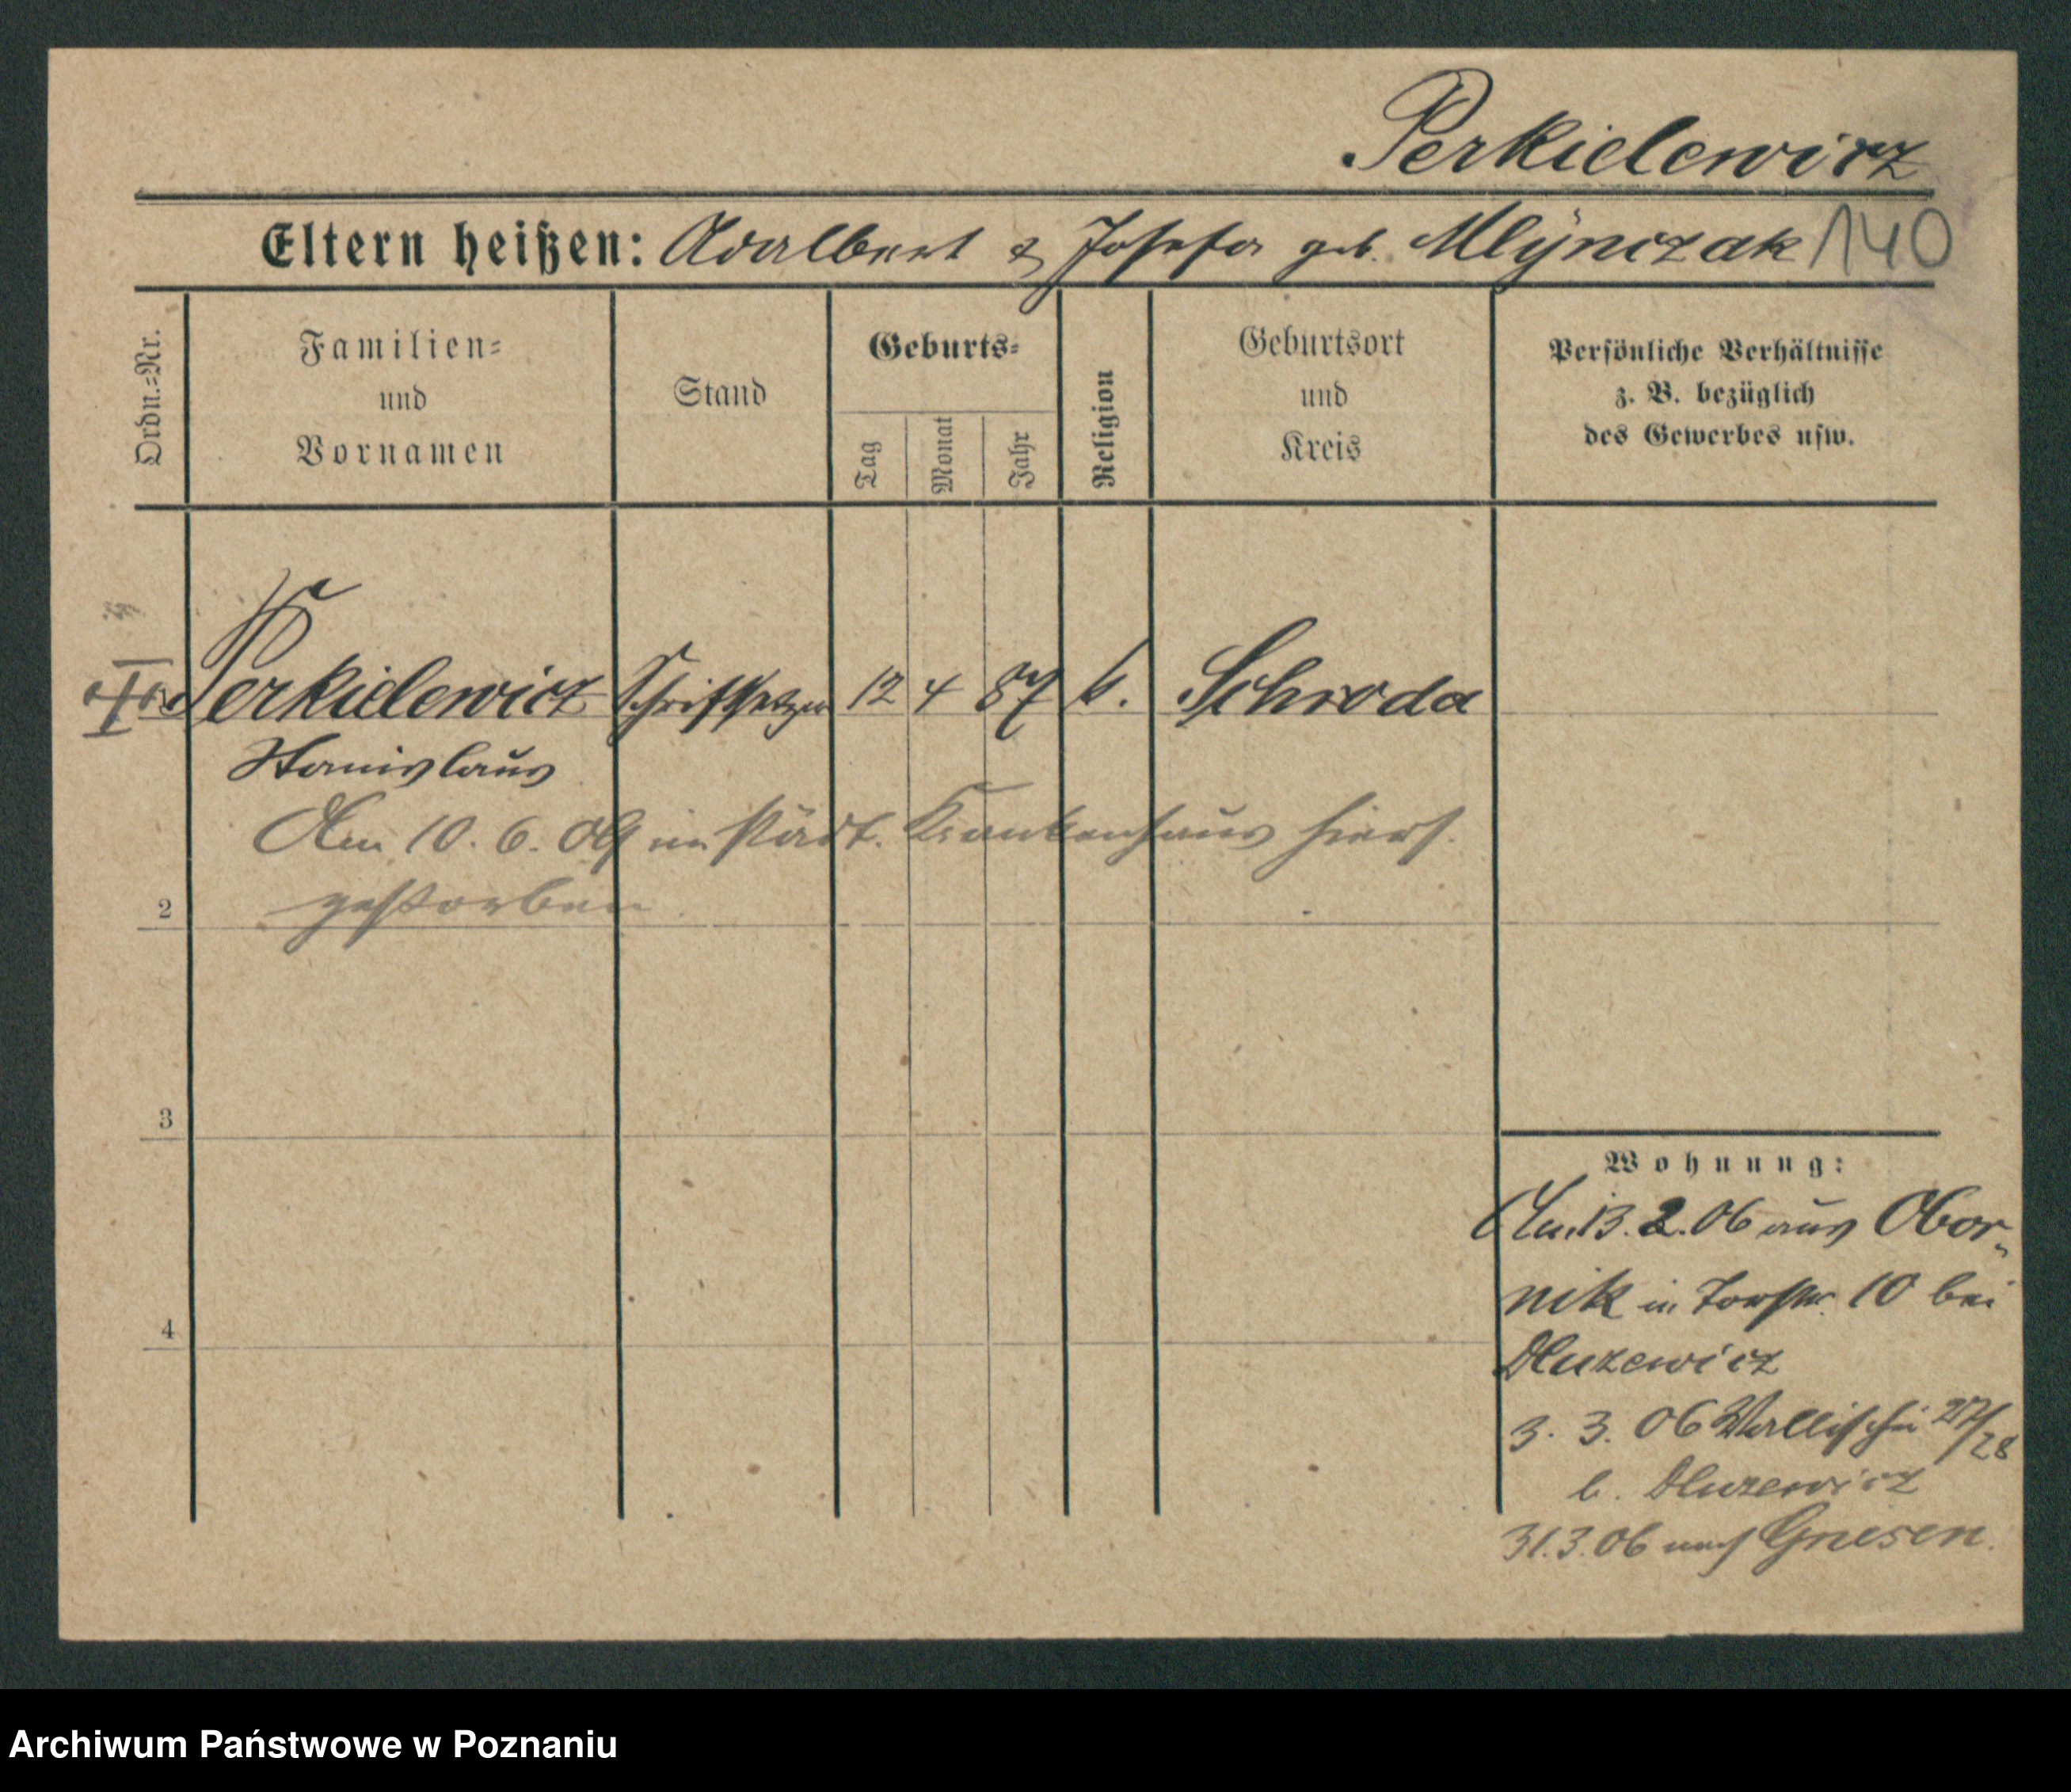 Perkielewicz
Eltern heißen: Adalbert & Josefa geb. Mlynczak 140
Ordn.-Nr.
Familien-
und
Vornamen
Stand
Geburts-
Tag
Monat
Jahr
Religion
Geburtsort
und
Kreis
Persönliche Verhältnisse
z. B. bezüglich
des Gewerbes usw.
Perkielewicz Schriftsetzer 12 4 87 k. Schroda
Stanislaus
Am 10. 6. 09 im städt. Krankenhaus hiers.
gestorben
2
3
4
Wohnung:
Am 13. 2. 06 aus Obor-
nik in Torstr. 10 bei
Dluzewicz
3. 3. 06 Wallischei 27/28
b. Dluzewicz
31.3.06 nach Gnesen.
Archiwum Państwowe w Poznaniu